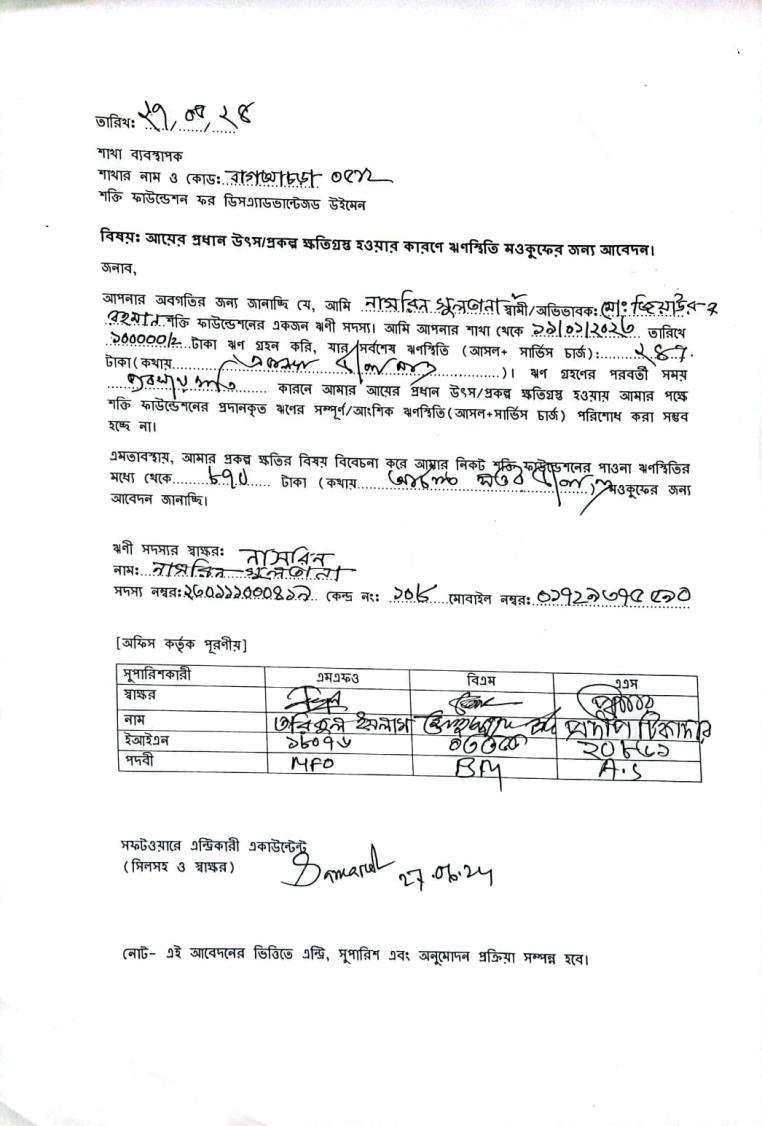 তারিখ: ২৭/০৬/২৪
শাখা ব্যবস্থাপক
শাখার নাম ও কোড: বাগআচড়া
শক্তি ফাউন্ডেশন ফর ডিসএ্যাডভান্টেজড উইমেন
বিষয়: আয়ের প্রধান উৎস/প্রকল্প ক্ষতিগ্রস্থ হওয়ার কারণে ঋণস্থিতি মওকুফের জন্য আবেদন।
জনাব,
আপনার অবগতির জন্য জানাচ্ছি যে, আমি নাসরিন সুলতানা স্বামী/অভিভাবক: মোঃ জিয়াউর
রহমান শক্তি ফাউন্ডেশনের একজন ঋণী সদস্য। আমি আপনার শাখা থেকে তারিখে
১০০০০০/= টাকা ঋণ গ্রহন করি, যার সর্বশেষ ঋণস্থিতি (আসল+ সার্ভিস চার্জ):
টাকা(কথায় )। ঋণ গ্রহণের পরবর্তী সময়
কারনে আমার আয়ের প্রধান উৎস/প্রকল্প ক্ষতিগ্রস্থ হওয়ায় আমার পক্ষে
শক্তি ফাউন্ডেশনের প্রদানকৃত ঋণের সম্পূর্ণ/আংশিক ঋণস্থিতি(আসল+সার্ভিস চার্জ) পরিশোধ করা সম্ভব
হচ্ছে না।
এমতাবস্থায়, আমার প্রকল্প ক্ষতির বিষয় বিবেচনা করে আমার নিকট শক্তি ফাউন্ডেশনের পাওনা ঋণস্থিতির
মধ্যে থেকে ৮৭০ টাকা (কথায় আটশত সত্তর ) মওকুফের জন্য
আবেদন জানাচ্ছি।
ঋণী সদস্যর স্বাক্ষর: নাসরিন
নাম: নাসরিন সুলতানা
সদস্য নম্বর: কেন্দ্র নং: ১০৮ মোবাইল নম্বর:
[অফিস কর্তৃক পূরণীয়]
সুপারিশকারী এমএফও বিএম এএস
স্বাক্ষর
নাম তরিকুল ইসলাম প্রদীপ টিকাদার
ইআইএন ১৮০৭৬ ২০৮৫১
পদবী MFO BM A.S
সফটওয়ারে এন্ট্রিকারী একাউন্টেন্ট
(সিলসহ ও স্বাক্ষর) 27.06.24
নোট- এই আবেদনের ভিত্তিতে এন্ট্রি, সুপারিশ এবং অনুমোদন প্রক্রিয়া সম্পন্ন হবে।